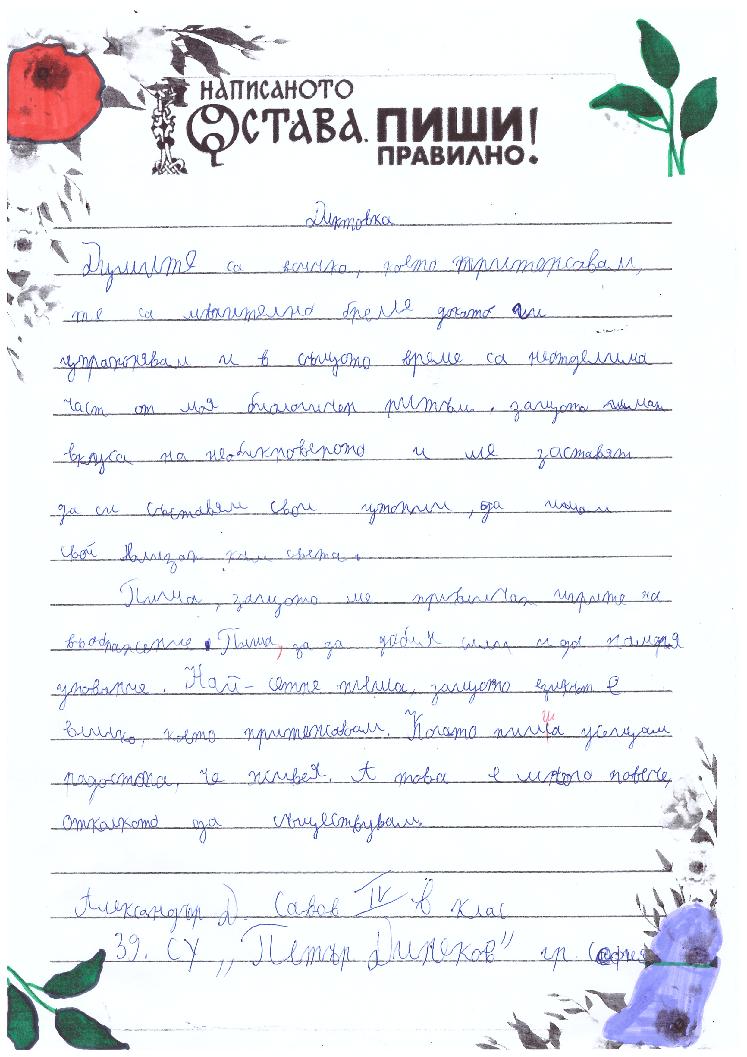 НАПИСАНОТО
ОСТАВА. ПИШИ
ПРАВИЛНО!
Диктовка
Думите са всичко, което притежавам,
те са мъчително бреме докато ги
упражнявам и в същото време са неотделима
част от моя биологичен ритъм. защото имам
вкуса на необикновеното и ме заставят
да си съставям свои утопии, да имам
свой поглед към света.
Пиша, защото ме привличат игрите на
въображение. Пиша, за да добия сили и да намеря
упование. Най-сетне пиша, защото езикът е
всичко, което притежавам. Когато пиша усещам
радостта, че живея. А това е много повече,
отколкото да съществувам.
Александър Д. Савов IV в клас
39. СУ "Петър Динеков" гр. София